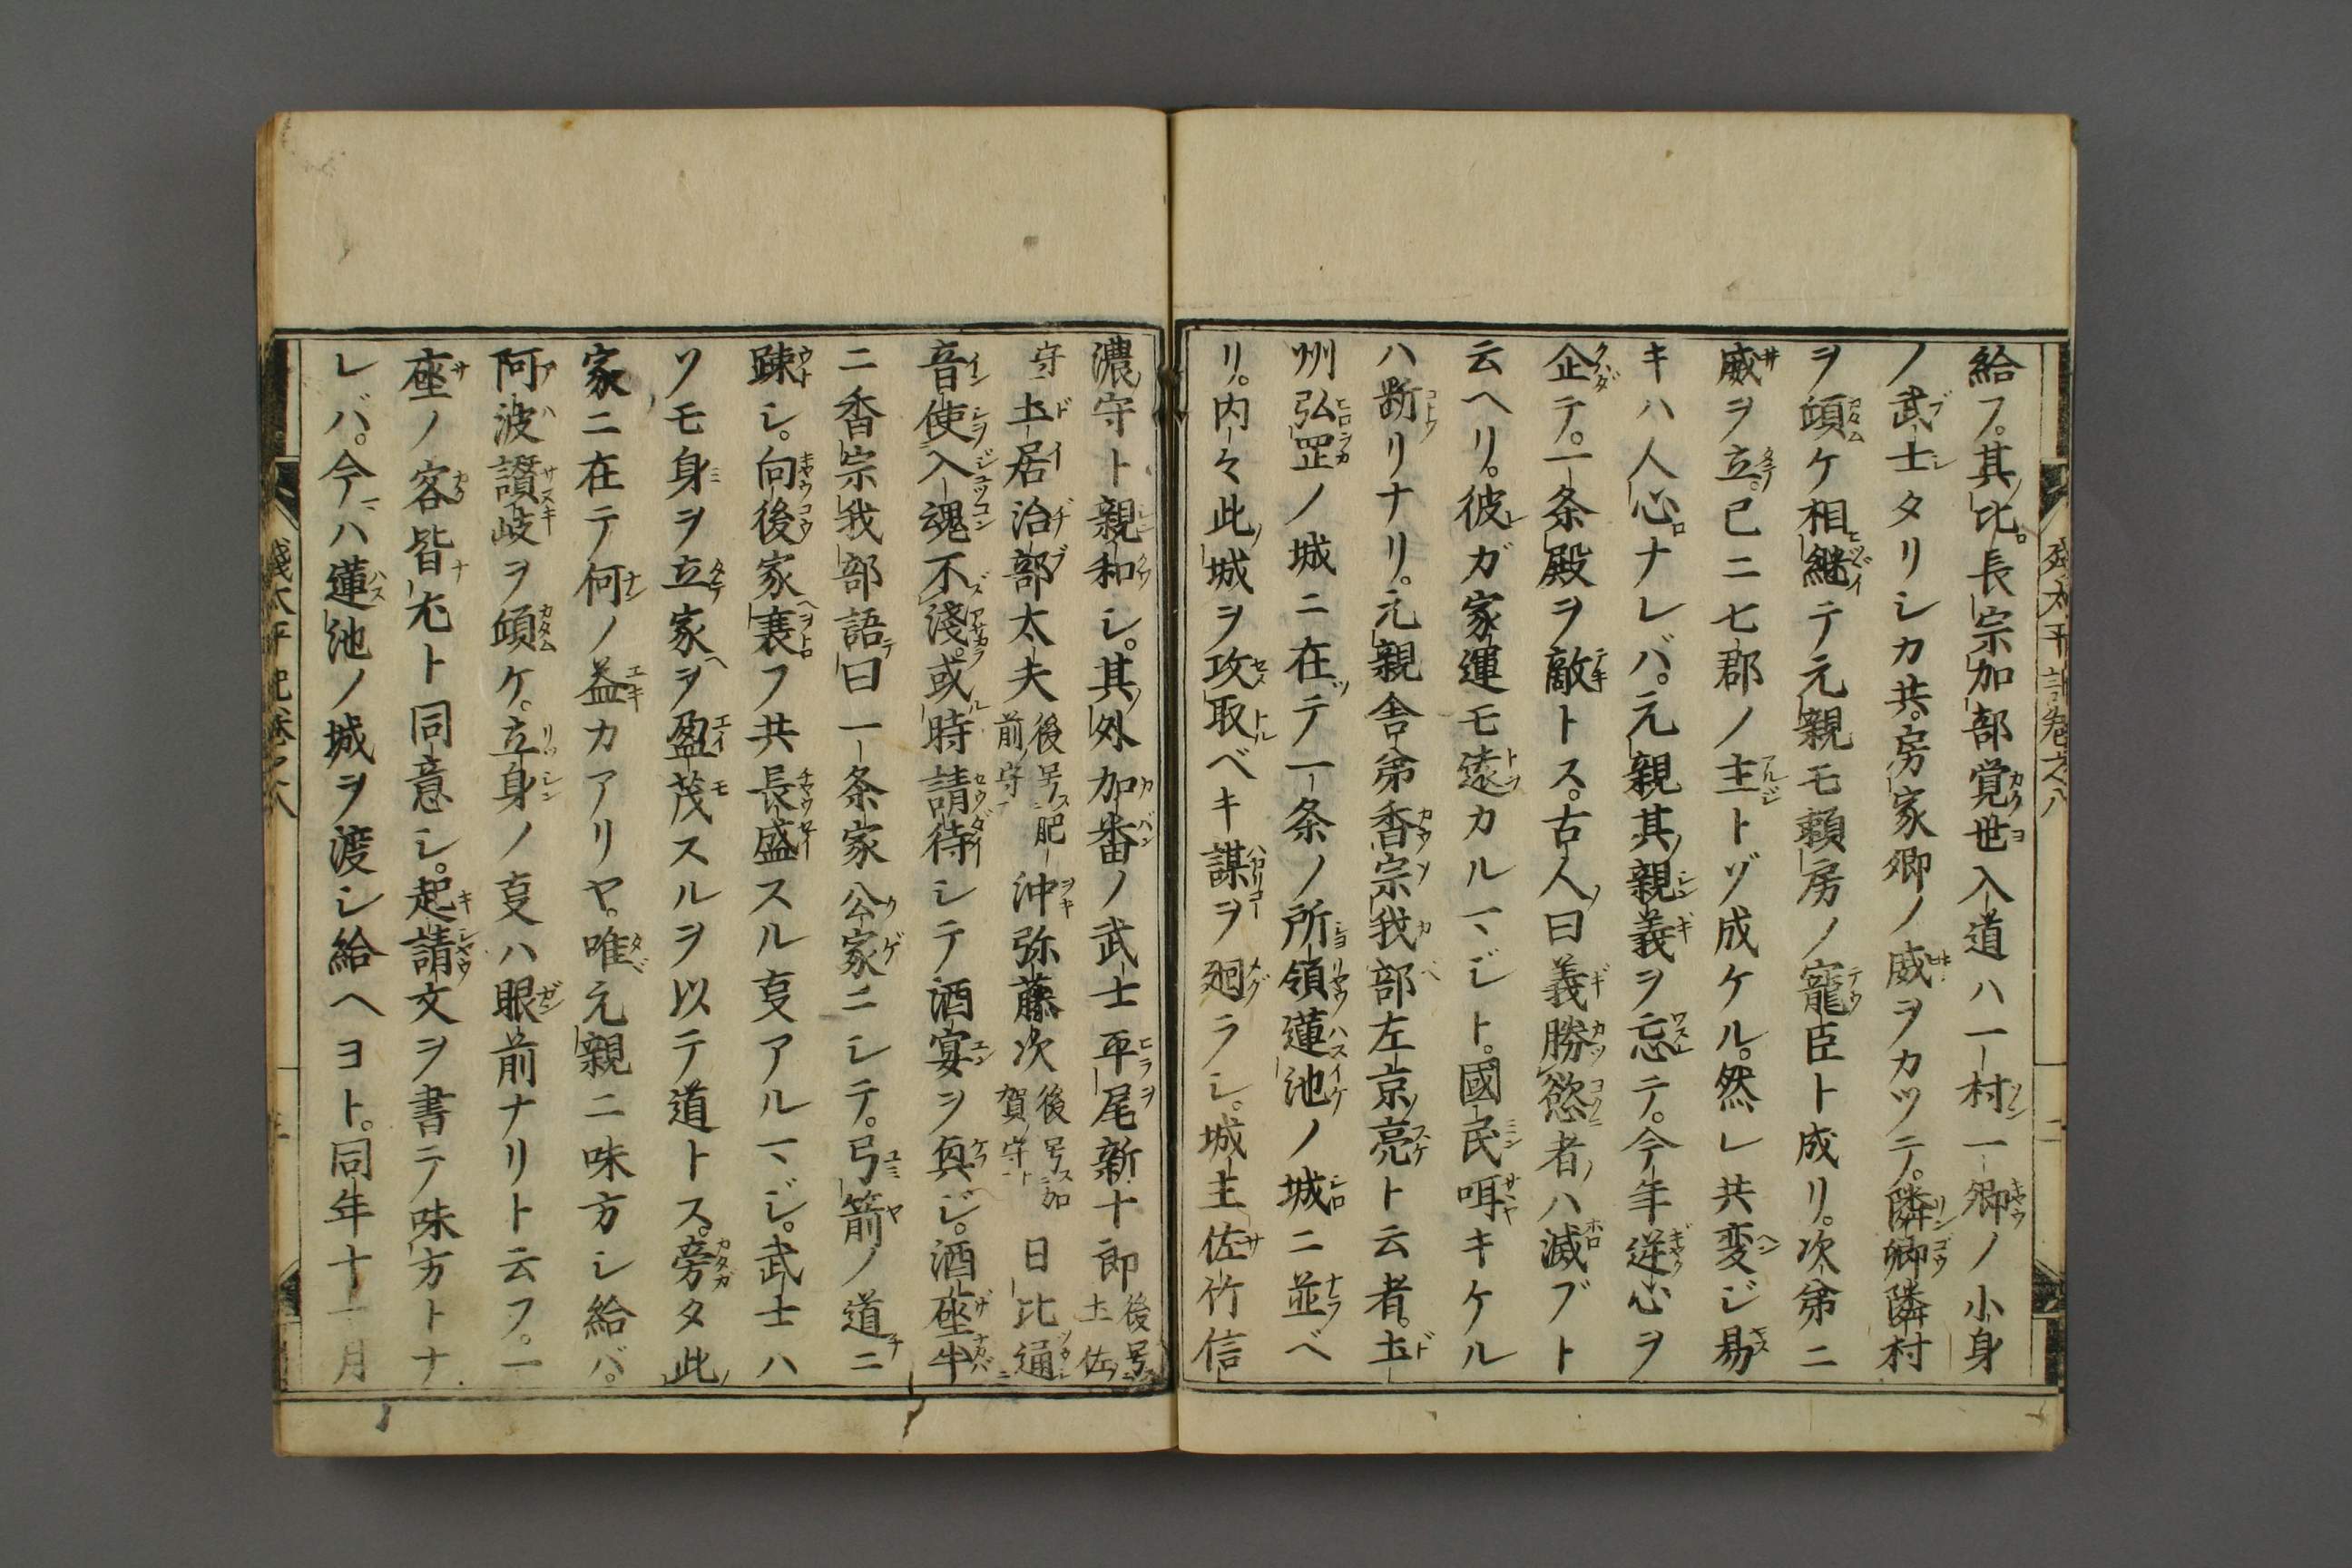 給フ。其比。長宗加部覚世入道ハ一村一郷ノ小身
ノ武士タリシカ共。房家卿ノ威ヲカツテ。隣郷隣村
ヲ傾ケ相継テ元親モ頼房ノ寵臣ト成リ。次第ニ
威ヲ立。已ニ七郡ノ主トゾ成ケル。然レ共変ジ易
キハ人心ナレバ。元親其親義ヲ忘テ。今年逆心ヲ
企テ。一条殿ヲ敵トス。古人曰義勝慾者ハ滅ブト
云ヘリ。彼ガ家運モ遠カルマジト。國民咡キケル
ハ断リナリ。元親舎弟香宗我部左京亮ト云者。土
州弘罡ノ城ニ在テ一条ノ所領蓮池ノ城ニ並ベ
リ。内々此城ヲ攻取ベキ謀ヲ廻ラシ。城主佐竹信
濃守ト親和シ。其外加番ノ武士平尾新十郎後号土佐
守土居治部太夫後号肥前守沖弥藤次後号加賀守日比通
音使入魂不淺。或時請待シテ酒宴ヲ興ジ。酒座半
ニ香宗我部語曰一条家公家ニシテ。弓箭ノ道ニ
踈シ。向後家裏フ共長盛スル叓アルマジ。武士ハ
ソモ身ヲ立家ヲ盈茂スルヲ以テ道トス。旁タ此
家ニ在テ何ノ益カアリヤ。唯元親ニ味方シ給バ。
阿波讃岐ヲ傾ケ。立身ノ叓ハ眼前ナリト云フ。一
座ノ客皆尤ト同意シ。起請文ヲ書テ味方トナ
レバ。今ハ蓮池ノ城ヲ渡シ給ヘヨト。同年十一月